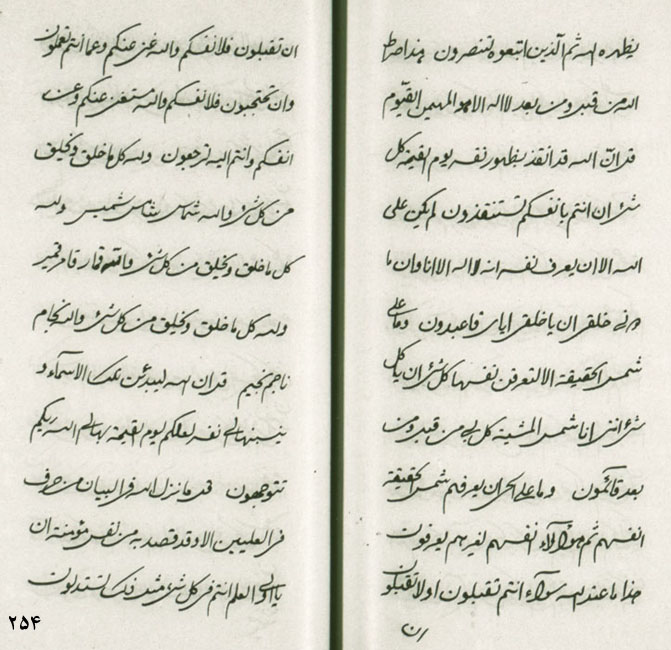 يظهره الله ثم الذين اتبعوه تنصرون هذا صراط
الله من قبل ومن بعد لا اله الا هو المهيمن القيوم
قل ان الله قد انقذ بظهور نفسه يوم القيمة كل
شئ ان انتم بانفسكم تستنقذون لم يكن على
الله الا ان يعرف نفسه انه لا اله الا انا وان ما
دوني خلقي ان يا خلقي اياي فاعبدون وما على
شمس الحقيقة الا لتعرفن نفسها كل شئ ان يا كل
شئ انني انا شمس المشية كل بي من قبل ومن
بعد قائمون وما على الحق ان يعرفنهم شمس الحقيقة
انفسهم ثم هؤلاء انفسهم لغيرهم يعرفون
هذا ما عند الله سواء انتم تقبلون او لا تقبلون
ان
ان تقبلون فلانفسكم والله غني عنكم وعما انتم تعملون
وان تحتجبون فلانفسكم والله مستغني عنكم وعن
انفسكم وانتم اليه لترجعون ولله كل ما خلق ويخلق
من كل شئ والله شماس شامس شميس ولله
كل ما خلق ويخلق من كل شئ والله قمار قامر قمير
ولله كل ما خلق ويخلق من كل شئ والله نجام
ناجم نجيم قل ان الله ليبدئن تلك الاسماء و
ينسبنها الى نفسه لعلكم يوم القيمة بها الى الله ربكم
تتوجهون قل ما نزل الله في البيان من حرف
في العليين الا وقد قصد به من نفس مؤمنة ان
يا اولي العلم انتم في كل شئ مثل ذلك لتستدلون
۲۵۴